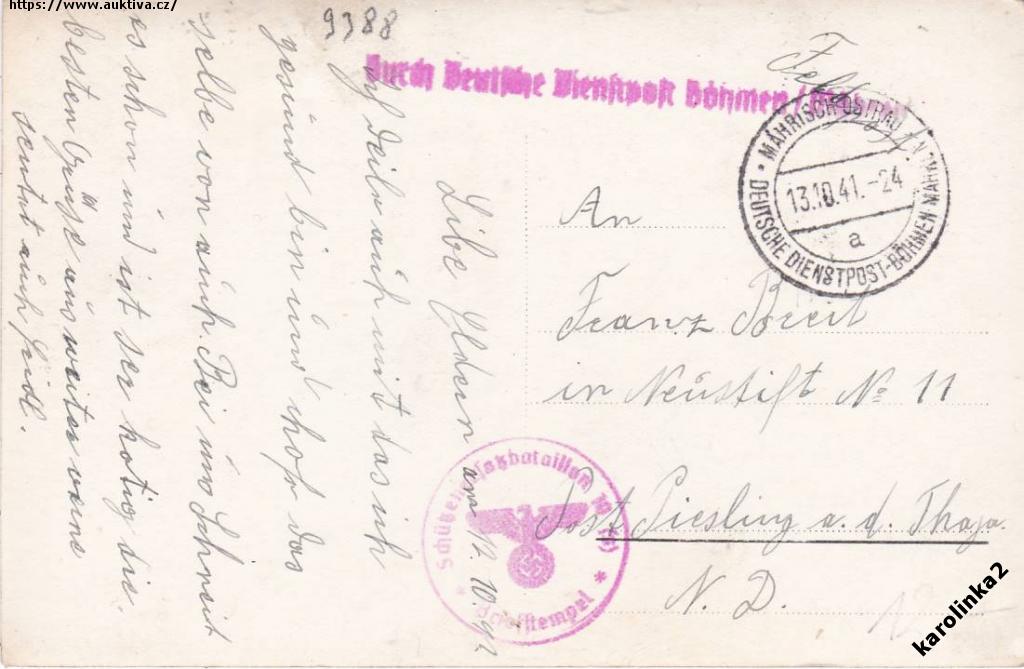 https://www.auktiva.cz/
9388
Durch Deutsche Dienstpost Böhmen/Mähren
MÄHRISCH OSTRAU
13.10.41.-24
a
DEUTSCHE DIENSTPOST-BÖHMEN-MÄHREN
am 12. 10. 41
Libe Eldern
Ich Teile eüch mit das ich
gesünd bin ünd hofe das
selbe von eüch. Bei üns Schneit
es schon ünd ist ser kotig die
besten Grüße aüs weiter verne
sentet eüch
An
Franz Breit
in Neüstift No 11
Post Piesling a. d. Thaja
N. D.
Briefstempel
karolinka2